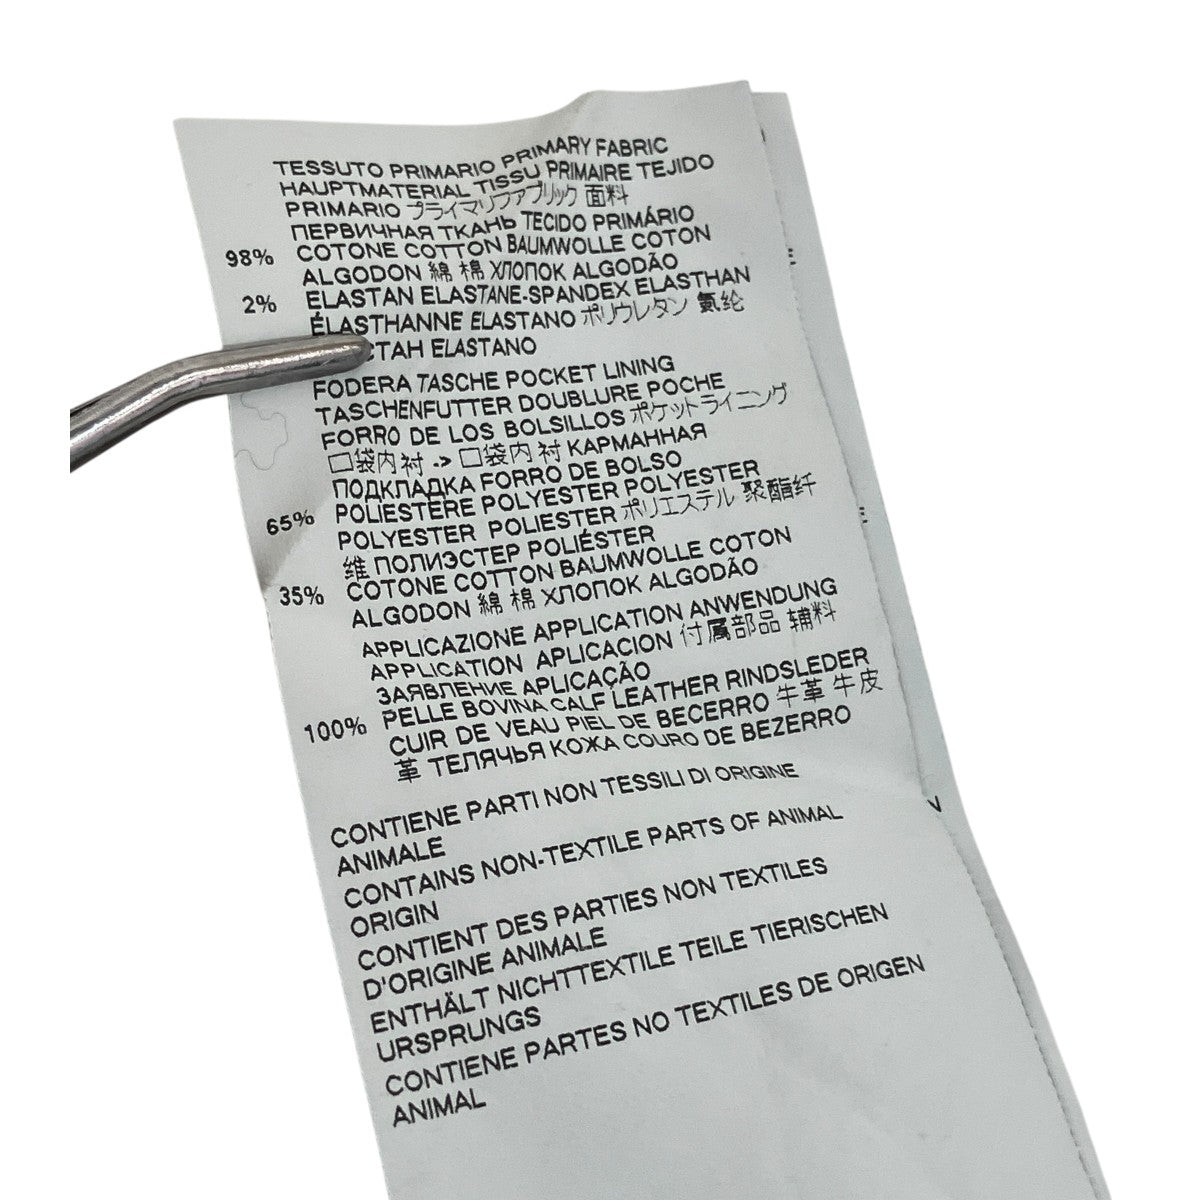 TESSUTO PRIMARIO PRIMARY FABRIC
HAUPTMATERIAL TISSU PRIMAIRE TEJIDO
PRIMARIO プライマリファブリック 面料
ПЕРВИЧНАЯ ТКАНЬ TECIDO PRIMÁRIO
98% COTONE COTTON BAUMWOLLE COTON
ALGODON 綿 棉 ХЛОПОК ALGODÃO
2% ELASTAN ELASTANE-SPANDEX ELASTHAN
ÉLASTHANNE ELASTANO ポリウレタン 氨纶
СТАН ELASTANO
FODERA TASCHE POCKET LINING
TASCHENFUTTER DOUBLURE POCHE
FORRO DE LOS BOLSILLOS ポケットライニング
口袋内 衬 -> 口袋内 衬 КАРМАННАЯ
ПОДКЛАДКА FORRO DE BOLSO
65% POLIESTERE POLYESTER POLYESTER
POLYESTER POLIESTER ポリエステル 聚酯纤
维 ПОЛИЭСТЕР POLIÉSTER
35% COTONE COTTON BAUMWOLLE COTON
ALGODON 綿 棉 ХЛОПОК ALGODÃO
APPLICAZIONE APPLICATION ANWENDUNG
APPLICATION APLICACION 付属部品 辅料
ЗАЯВЛЕНИЕ APLICAÇÃO
100% PELLE BOVINA CALF LEATHER RINDSLEDER
CUIR DE VEAU PIEL DE BECERRO 牛革 牛皮
革 ТЕЛЯЧЬЯ КОЖА COURO DE BEZERRO
CONTIENE PARTI NON TESSILI DI ORIGINE
ANIMALE
CONTAINS NON-TEXTILE PARTS OF ANIMAL
ORIGIN
CONTIENT DES PARTIES NON TEXTILES
D'ORIGINE ANIMALE
ENTHÄLT NICHTTEXTILE TEILE TIERISCHEN
URSPRUNGS
CONTIENE PARTES NO TEXTILES DE ORIGEN
ANIMAL